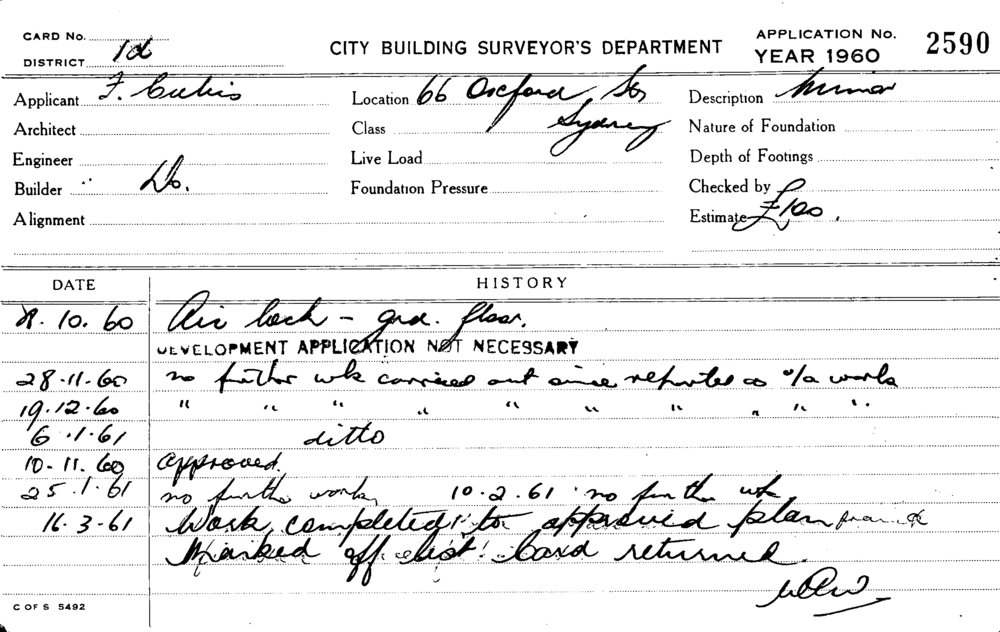 CARD No.
DISTRICT 1d
CITY BUILDING SURVEYOR'S DEPARTMENT
APPLICATION No. 2590
YEAR 1960
Applicant F. Cubis Location 66 Oxford St, Description Minor
Architect Class Sydney Nature of Foundation
Engineer Live Load Depth of Footings
Builder Do. Foundation Pressure Checked by
Alignment Estimate £100.
DATE HISTORY
10. 60 Air lock - grd. floor.
DEVELOPMENT APPLICATION NOT NECESSARY
28.11.60 no further wk carried out since reported as u/a works
19.12.60 " " " " " " " " " "
6.1.61 ditto
10-11.60 approved.
25.1.61 no further work, 10.2.61 no further wk,
16.3.61 Work completed to approved plan
Marked off list. Card returned.
C OF S 5492